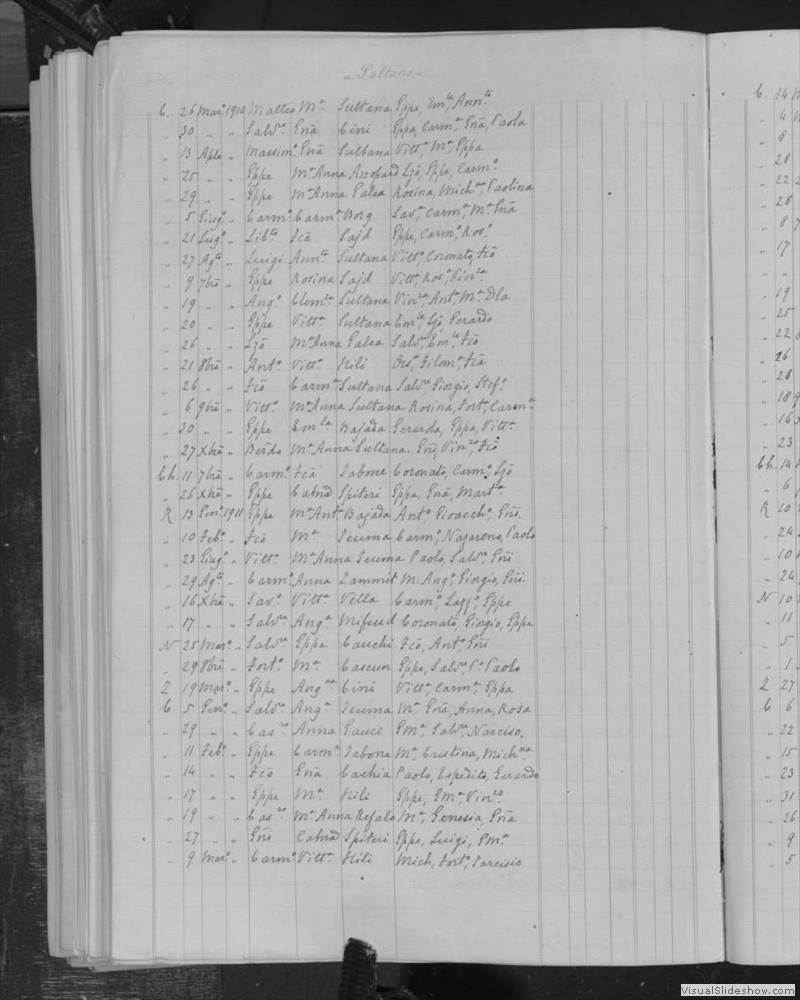 Sultana
C. 26 Mar.º 1910 Matteo Mª Sultana Eppe, Emle Annta
" 30 " " Salvre Gnã Cini Eppa, Carmª Gnã, Paola
" 13 Aple " Massimº Gnã Sultana Vittª Mª, Eppa
" 25 " " Eppe Mª Anna Azzopard Ljõ, Eppe, Carmº
" 29 " " Eppe Mª Anna Galea Rosina, Michna Paolina
" 5 Giugº " Carmº Carmª Borg Savª, Carmª, Mª Gnã
" 21 Lugº " Libto Fcã Sajd Eppe, Carmº, Rosº
" 27 Agto " Luigi Annta Sultana Vittª, Coronato, Fcõ
" 9 7bre " Eppe Rosina Sajd Vittª, Rosª, Vinza
" 19 " " Angº Clemta Sultana Vinzo, Antª, Mª Dla
" 20 " " Eppe Vittª Sultana Emle, Ljõ, Gerardo
" 26 " " Ljõ Mª Anna Galea Salvre, Emle Fcõ
" 21 8bre " Antº Vittª Hili Filomª, Fcã
" 26 " " Fcõ Carmª Sultana Salvre, Giorgio, Stefº
" 6 9bre " Vittº Mª Anna Sultana Rosina, Fortª, Carmna
" 30 " " Eppe Emla Bajada Gerarda, Eppa, Vittª
" 27 Xbre " Berdo Mª Anna Sultana Gni, Vinzo, Fcõ
Ch. 11 7bre " Carmº Fcã Tabone Coronato, Carmº, Ljõ
" 26 Xbre " Eppe Catnã Spiteri Eppa, Gnã, Martla
R 13 Genº 1911 Eppe Mª Antª Bajada Antº, Gioacchº, Gni.
" 10 Febº " Fcõ Mª Scicuma Carmº, Nazareno, Paolo
" 23 Giugº " Vittº Mª Anna Paolo, Salvre, Gni
" 29 Agto " Carmº Anna Zammit M. Angº, Giorgio, Gni.
" 16 Xbre " Savº Vittª Vella Carmº, Eppe
" 17 " " Salvre Angª Mifsud Coronato, Giorgio, Eppe
N 25 Marº " Salvre Eppa Cauchi Fcõ, Antº, Gni
" 29 8bre " Fortº Mª Cascun Eppe, Salvre, Paolo
Z 19 Marº " Eppe Angna Cini Vittª, Carmª, Eppa
C 5 Genº " Salvre Angª Mª Gnã, Anna, Rosa
" 29 " " Casro Anna Gauci Emª, Salvª, Narciso,
" 11 Febº " Eppe Carmª Tabone Mª Cristina, Michna
" 14 " " Fcõ Gnã Cachia Paolo, Espedito, Gerardo
" 17 " " Eppe Mª Hili Eppe, Gmª, Vinzo
" 19 " " Casro Mª Anna Refalo Mª Genesia, Gnã
" 27 " " Gni Catnã Spiteri Eppe, Luigi, Gmª
" 9 Marº " Carmº Vittª Hili Mich, Fortº, Tarcisio
C. 14
" 4
" 8
" 28
" 22
" 28
" 8
" 17
" "
" 19
" 25
" 22
" 26
" 28
" 18
" 16
" 23
Ch. 14
" 6
R 10
" 24
" 10
" 24
N 10
" 11
" 5
" 1
Z 27
C 6
" 22
" 15
" 23
" 31
" 26
" 9
" 5
VisualSlideshow.com